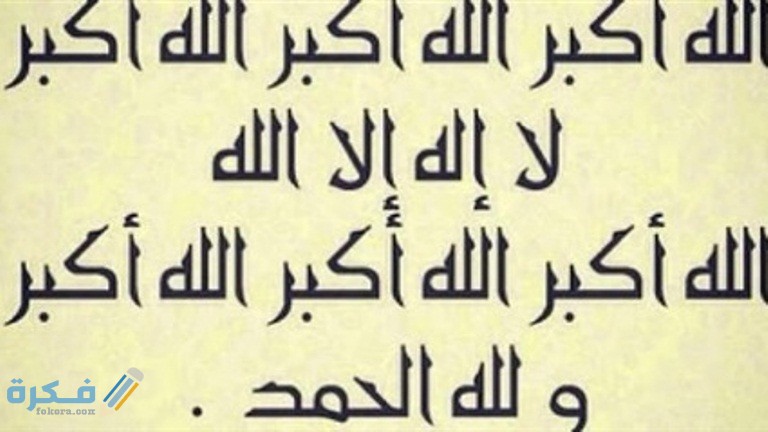 الله أكبر الله أكبر الله أكبر
لا إله إلا الله
الله أكبر الله أكبر الله أكبر
و لله الحمد .
فكرة
fokera.com